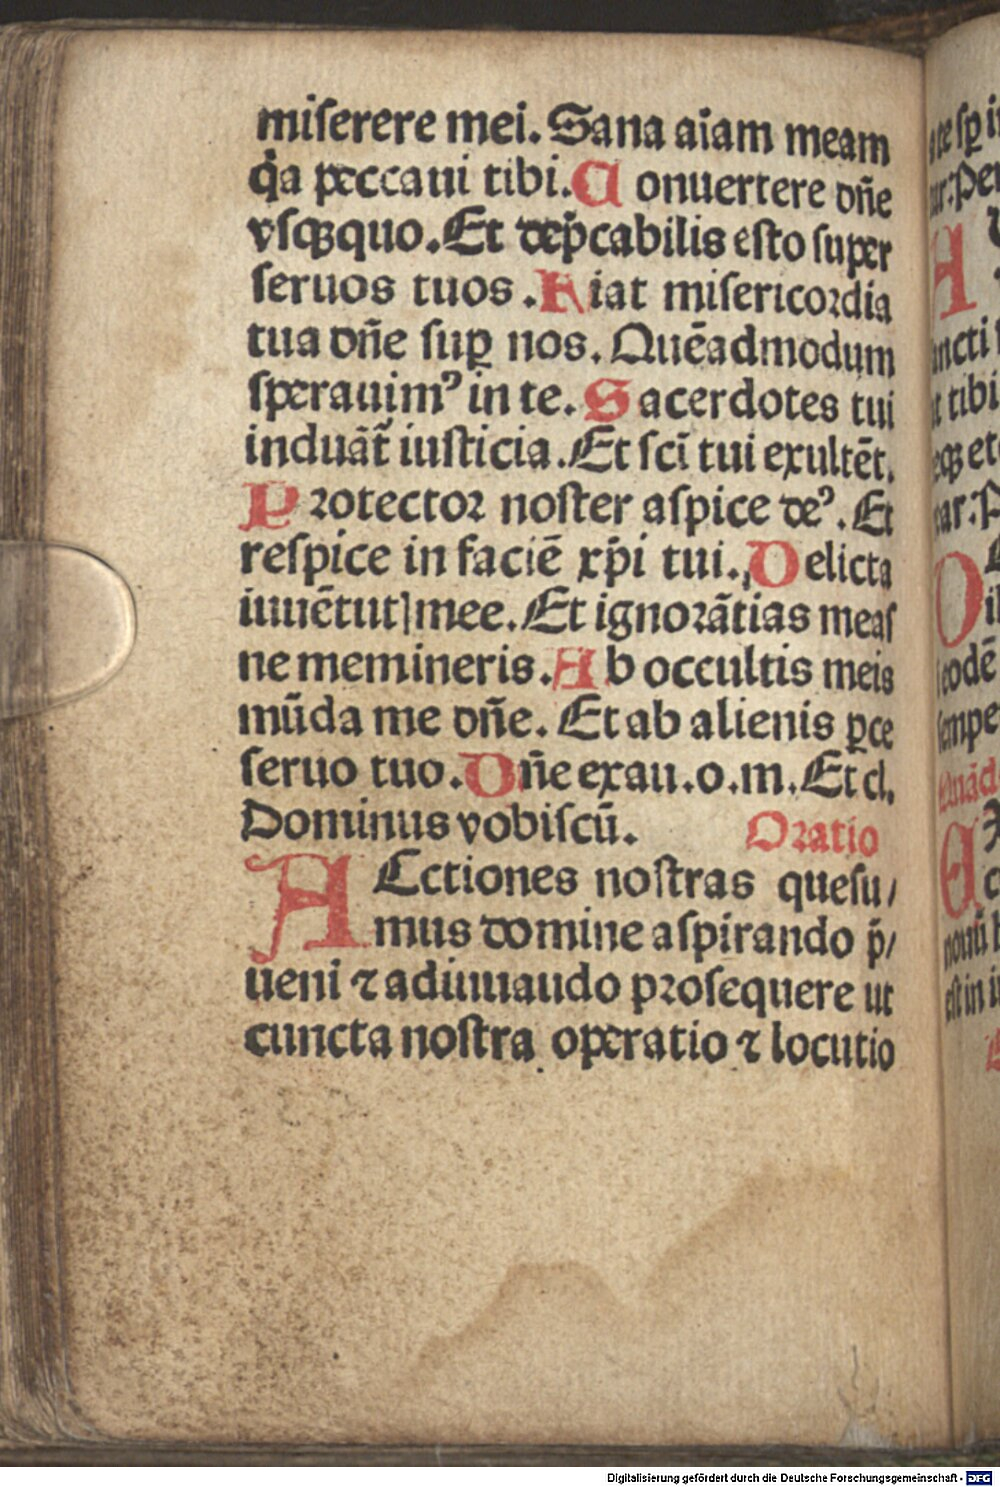 miſerere mei. Sana aı̄am meam
qͥa peccaui tibi. Conuertere dn̄e
vſqꝫquo. Et dep̄cabilis eſto super
ſeruos tuos. Fiat miſericoꝛdia
tua dn̄e ſuꝑ nos. Quēadmodum
ſperauimꝰ in te. Sacerdotes tui
induāt̄ iuſticia. Et ſcı̄ tui exultēt.
Pꝛotectoꝛ noſter aſpice deꝰ. Et
reſpice in faciē xp̄i tui. Delicta
iuuētutꝭ mee. Et ignoꝛātias meaſ
ne memineris. Ab occultis meis
mūda me dn̄e. Et ab alienis ꝑce
ſeruo tuo. Dn̄e exau. o. m. Et cl.
Dominus vobiſcū. Oꝛatio
ACctiones noſtras queſu/
mus domine aſpirando p̄/
ueni ⁊ adiuuaudo pꝛoſequere ut
cuncta noſtra operatio ⁊ locutio
Digitalisierung gefördert durch die Deutsche Forschungsgemeinschaft - DFG